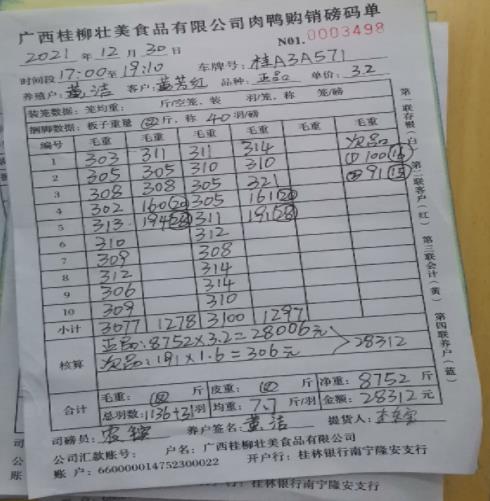 广西桂柳壮美食品有限公司肉鸭购销磅码单
2021 年 12 月 30 日 N01.0003498
时间段 17:00至19:10 车牌号: 桂A3A571
养殖户: 黄洁 客户: 黄芳红 品种: 正品 单价: 3.2
装笼数据: 笼均重: 斤/空笼, 装 羽/笼, 称 笼/磅
捆脚数据: 板子重量 斤, 称 40 羽/磅
编号 毛重 毛重 毛重 毛重 毛重 毛重
1 303 311 311 314 次品
2 305 305 310 310 ① 100 (16)
3 308 308 305 321 ② 91 (15)
4 302 160 (20) 305 161 (20)
5 313 194 311 191 (28)
6 310 312
7 309 308
8 312 314
9 306 314
10 309 310
小计 3077 1278 3100 1297
核算 正品: 8752×3.2=28006元
次品: 191×1.6=306元 28312
合计 毛重: 斤 皮重: 斤 净重: 8752 斤
总羽数: 1136+31羽 均重: 7.7 斤/羽 金额: 28312元
司磅员: 养户签名: 黄洁 提货人:
公司汇款账号: 户名: 广西桂柳壮美食品有限公司
账 户: 660000014752300022 开户行: 桂林银行南宁隆安支行
第一联存根(白) 第二联客户(红) 第三联会计(黄) 第四联养户(蓝)
桂林银行南宁隆安支行